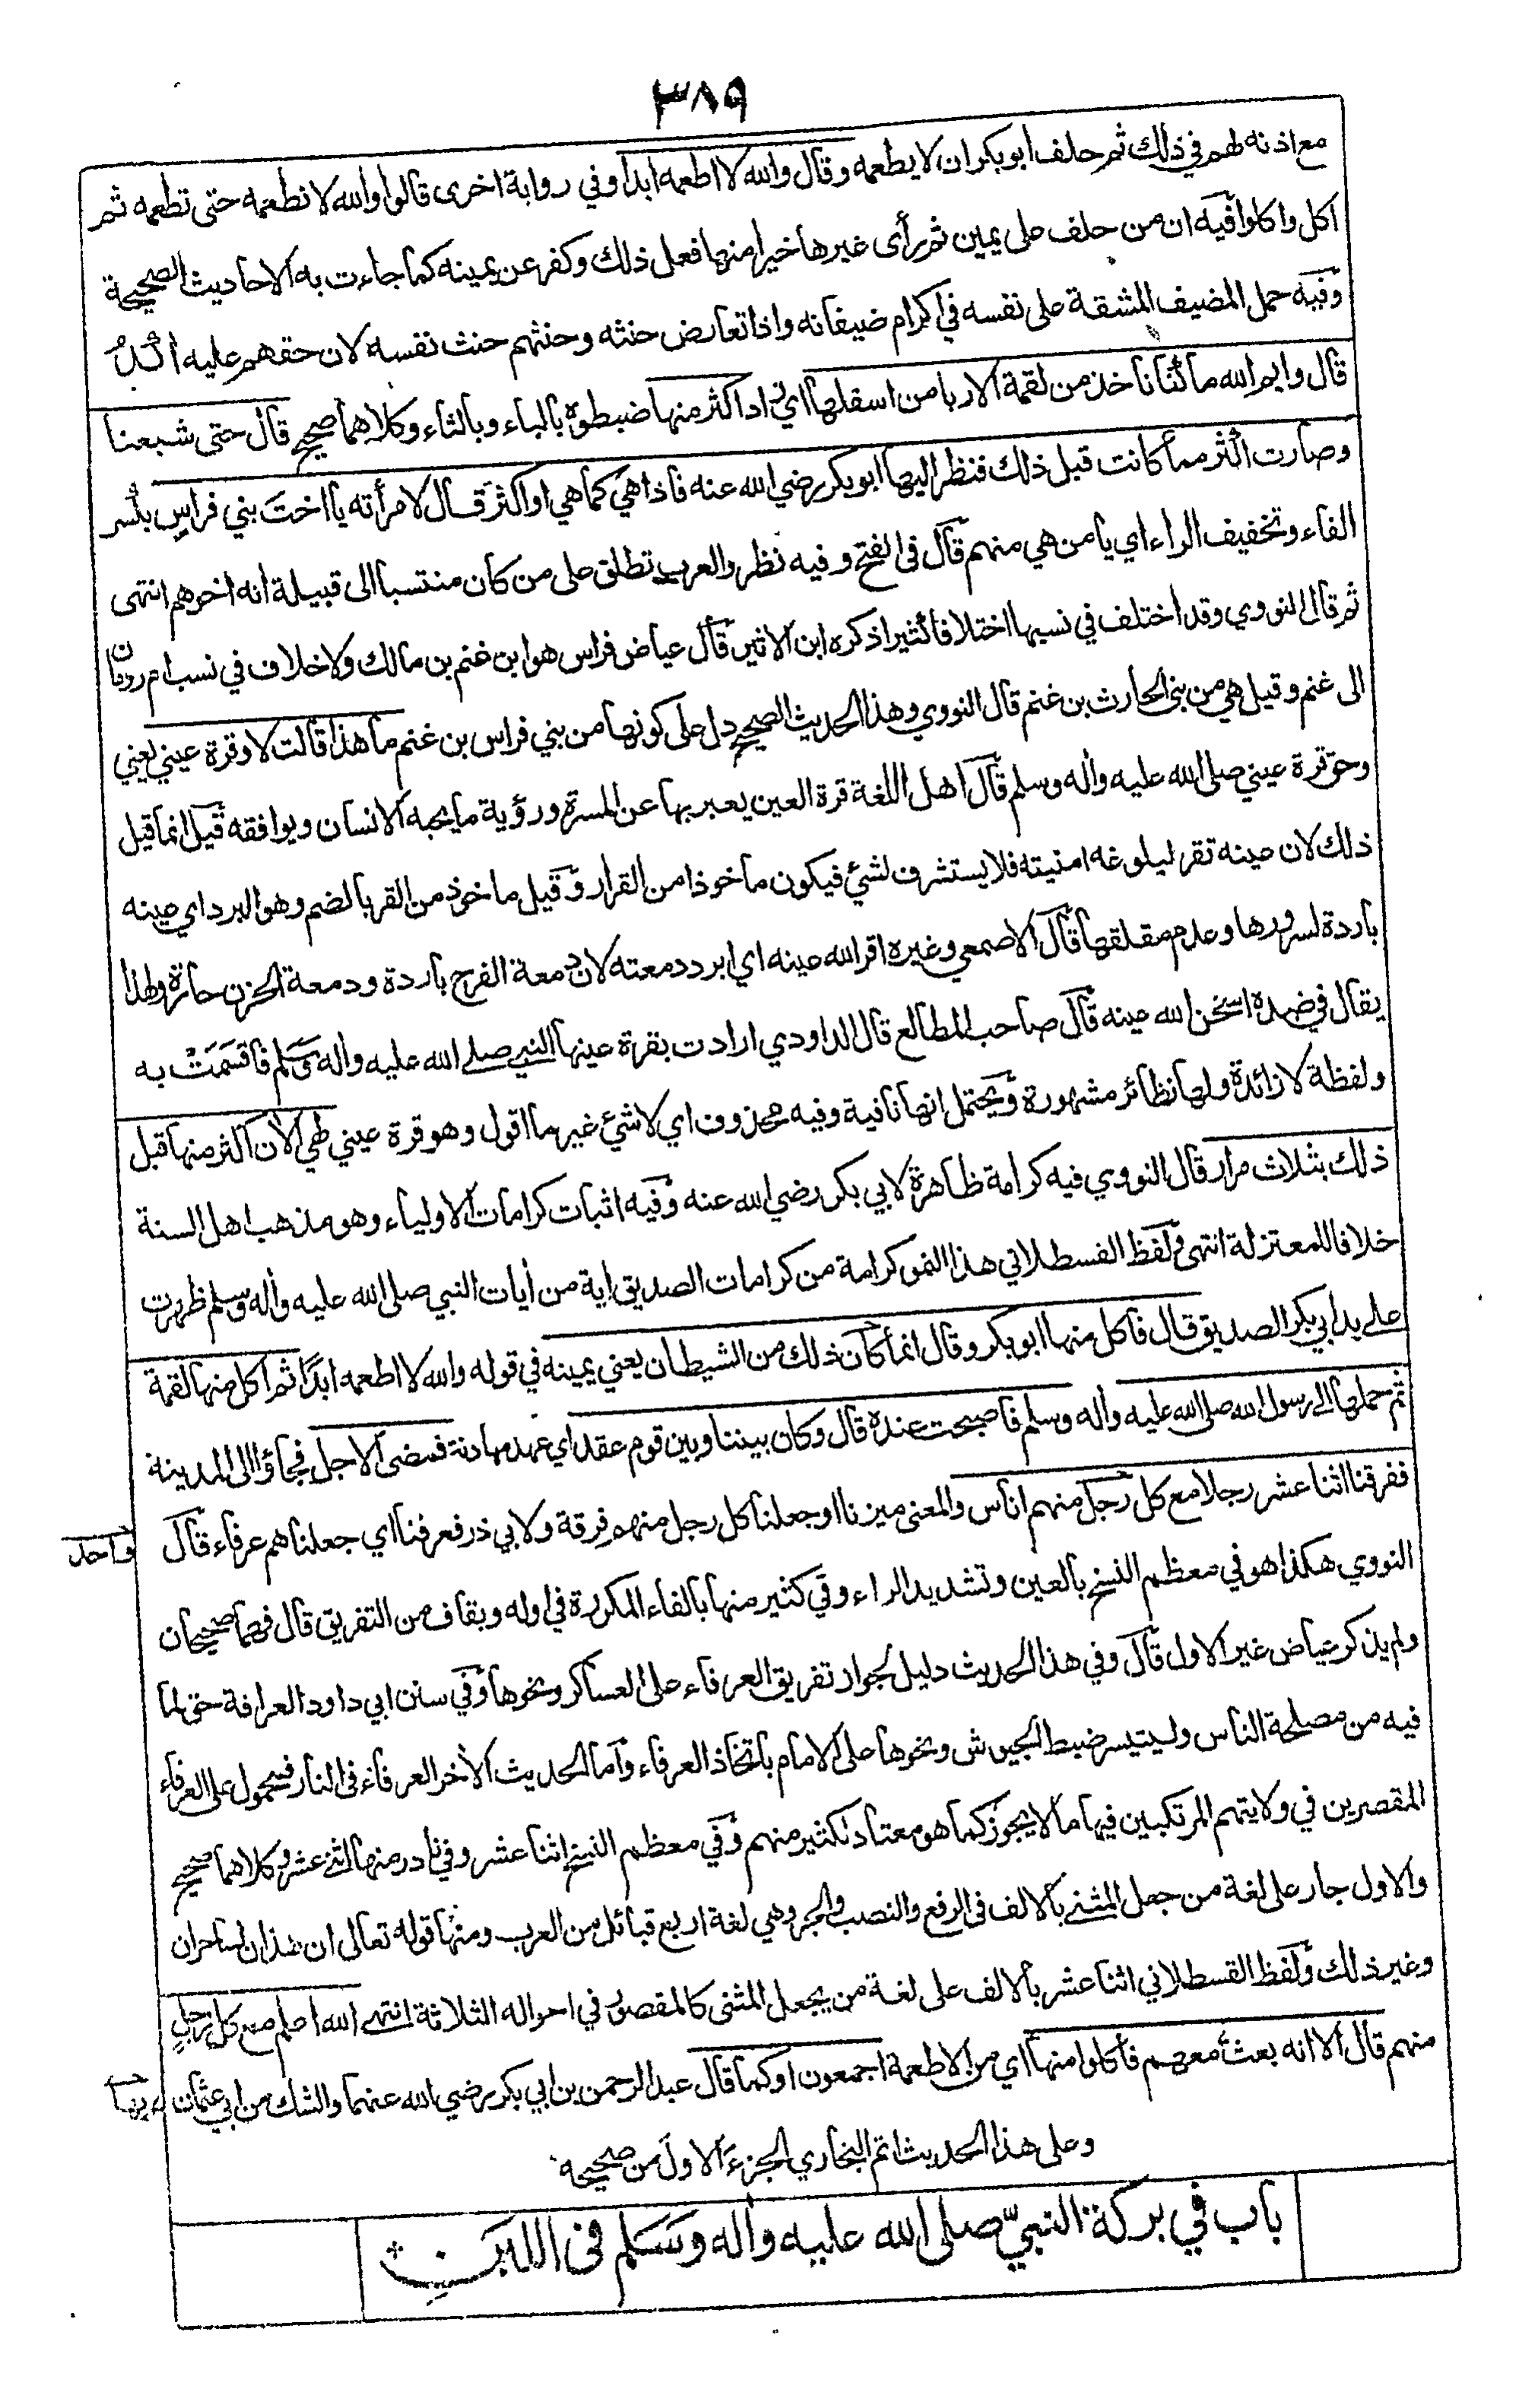 ٣٨٩
مع اذنه لهم في ذلك ثم حلف ابو بكر ان لا يطعمه وقال والله لا اطعمه ابدا وفي رواية اخرى قالوا والله لا نطعمه حتى تطعمه ثم
اكل واكلوا فيه ان من حلف على يمين ثم رأى غيرها خيرا منها فعل ذلك وكفر عن يمينه كما جاءت به الاحاديث الصحيحة
وفيه حمل المضيف المشقة على نفسه في اكرام ضيفانه واذا تعارض حنثه وحنثهم حنث نفسه لان حقهم عليه اكد
قال وايم الله ما كنا نأخذ من لقمة الا ربا من اسفلها اي زاد اكثر منها ضبطوه بالباء وبالثاء وكلاهما صحيح قال حتى شبعنا
وصارت اكثر مما كانت قبل ذلك فنظر اليها ابو بكر رضي الله عنه فاذا هي كما هي او اكثر قال لامرأته يا اخت بني فراس بكسر
الفاء وتخفيف الراء اي يا من هي منهم قال في الفتح وفيه نظر والعرب تطلق على من كان منتسبا الى قبيلة انه اخوهم انتهى
ثم قال النووي وقد اختلف في نسبها اختلافا كثيرا ذكره ابن الاثير قال عياض فراس هو ابن غنم بن مالك ولا خلاف في نسب ام رومان
الى غنم وقيل هي من بني الحارث بن غنم قال النووي وهذا الحديث الصحيح دل على كونها من بني فراس بن غنم ما هذا قالت لا وقرة عيني يعني
وحق قرة عيني صلى الله عليه واله وسلم قال اهل اللغة قرة العين يعبر بها عن المسرة ورؤية ما يحبه الانسان ويوافقه قيل انما قيل
ذلك لان عينه تقر لبلوغه امنيته فلا يستشرف لشيء فيكون ماخوذا من القرار وقيل ماخوذ من القر بالضم وهو البرد اي عينه
باردة لسرورها وعدم مقلقها قال الاصمعي وغيره اقر الله عينه اي ابرد دمعته لان دمعة الفرح باردة ودمعة الحزن حارة ولهذا
يقال في ضده اسخن الله عينه قال صاحب المطالع قال الداودي ارادت بقرة عينها النبي صلى الله عليه واله وسلم فاقسمت به
ولفظة لا زائدة ولها نظائر مشهورة ويحتمل انها نافية وفيه محذوف اي لا شيء غير ما اقول وهو قرة عيني لهي الآن اكثر منها قبل
ذلك بثلاث مرار قال النووي فيه كرامة ظاهرة لابي بكر رضي الله عنه وفيه اثبات كرامات الاولياء وهو مذهب اهل السنة
خلافا للمعتزلة انتهى ولفظ القسطلاني هذا النمو كرامة من كرامات الصديق اية من أيات النبي صلى الله عليه واله وسلم ظهرت
على يد ابي بكر الصديق قال فاكل منها ابو بكر وقال انما كان ذلك من الشيطان يعني يمينه في قوله والله لا اطعمه ابدًا ثم اكل منها لقمة
ثم حملها الى رسول الله صلى الله عليه واله وسلم فاصبحت عنده قال وكان بيننا وبين قوم عقد اي عهد مهادنة فمضى الاجل فجاؤا الى المدينة
ففرقنا اثنا عشر رجلا مع كل رجل منهم اناس والمعنى ميزنا او جعلنا كل رجل منهم فرقة ولابي ذر فعرفنا اي جعلناهم عرفاء قال
واحد
النووي هكذا هو في معظم النسخ بالعين وتشديد الراء وفي كثير منها بالفاء المكررة في اوله وبقاف من التفريق قال فهما صحيحان
ولم يذكر عياض غير الاول قال وفي هذا الحديث دليل لجواز تفريق العرفاء على العساكر ونحوها وفي سنن ابي داود العرافة حق لما
فيه من مصلحة الناس وليتيسر ضبط الجيوش ونحوها على الامام باتخاذ العرفاء واما الحديث الاخر العرفاء في النار فمحمول على العرفاء
المقصرين في ولايتهم المرتكبين فيها ما لا يجوز كما هو معتاد لكثير منهم وفي معظم النسخ اثنا عشر وفي نادر منها اثني عشر وكلاهما صحيح
والاول جار على لغة من جعل المثنى بالالف في الرفع والنصب والجر وهي لغة اربع قبائل من العرب ومنها قوله تعالى ان هذان لساحران
وغير ذلك ولفظ القسطلاني اثنا عشر بالالف على لغة من يجعل المثنى كالمقصور في احواله الثلاثة انتهى الله اعلم مع كل رجل
منهم قال الا انه بعث معهم فأكلوا منها اي من الاطعمة اجمعون او كما قال عبد الرحمن بن ابي بكر رضي الله عنهما والشك من ابي عثمان
وعلى هذا الحديث اتم البخاري الجزء الاول من صحيحه
باب في بركة النبيّ صلى الله عليه واله وسلم في اللبن